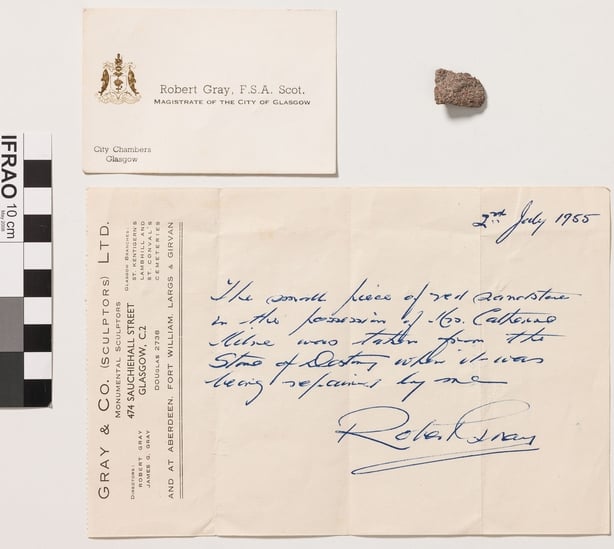 Robert Gray, F.S.A. Scot.
Magistrate of the City of Glasgow
City Chambers
Glasgow
IFRAO
10 cm
GRAY & CO. (SCULPTORS) LTD.
MONUMENTAL SCULPTORS
DIRECTORS:
ROBERT GRAY
JAMES G. GRAY
474 SAUCHIEHALL STREET
GLASGOW, C.2
DOUGLAS 2738
GLASGOW BRANCHES:
ST. KENTIGERN'S
LAMBHILL AND
ST. CONVAL'S
CEMETERIES
AND AT ABERDEEN, FORT WILLIAM, LARGS & GIRVAN
2nd July 1955
The small piece of red sandstone
in the possession of Mrs. Catherine
Milne was taken from the
Stone of Destiny when it was
being repaired by me
Robert Gray